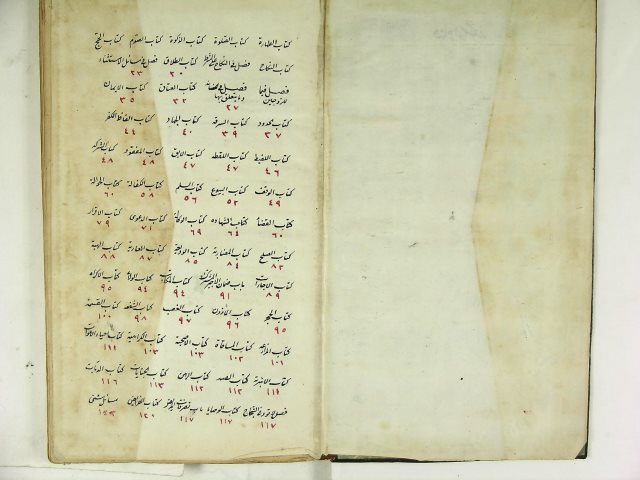 كتاب الطهارة كتاب الصلوة كتاب الزكوة كتاب الصوم كتاب الحج
كتاب النكاح كتاب الطلاق فصل في مسائل الاستثناء
٢٠ ٢٣
كتاب العتاق كتاب الايمان
٢٧ ٣٢ ٣٥
كتاب الحدود كتاب السرقة كتاب الجهاد كتاب الفاظ الكفر
٣٧ ٣٩ ٤٠ ٤٤
كتاب اللقيط كتاب اللقطة كتاب الابق كتاب المفقود كتاب الشركة
٤٦ ٤٧ ٤٧ ٤٨ ٤٨
كتاب الوقف كتاب البيوع كتاب السلم كتاب الكفالة كتاب الحوالة
٤٩ ٥٢ ٥٦ ٥٨ ٦٠
كتاب القضا كتاب الشهاده كتاب الوكالة كتاب الدعوى كتاب الاقرار
٦٠ ٦٤ ٦٩ ٧١ ٧٩
كتاب الصلح كتاب المضاربة كتاب الوديعة كتاب العارية كتاب الهبة
٨٢ ٨٤ ٨٥ ٨٧ ٨٨
كتاب الاجارات باب ضمان الاجير كتاب المكاتب كتاب الولا كتاب الاكراه
٨٩ ٩١ ٩٤ ٩٤ ٩٥
كتاب الحجر كتاب الماذون كتاب الغصب كتاب الشفعة كتاب القسمة
٩٥ ٩٦ ٩٧ ٩٨ ١٠٠
كتاب المزارعة كتاب المساقاة كتاب الاضحية كتاب الكراهية كتاب احياء الاموات
١٠١ ١٠٢ ١٠٣ ١٠٣ ١١١
كتاب الاشربة كتاب الصيد كتاب الرهن كتاب الجنايات كتاب الديات
١١٢ ١١٢ ١١٣ ١١٦
كتاب الوصايا كتاب الفرائض مسائل شتى
١١٧ ١١٧ ١١٧ ١٢٠